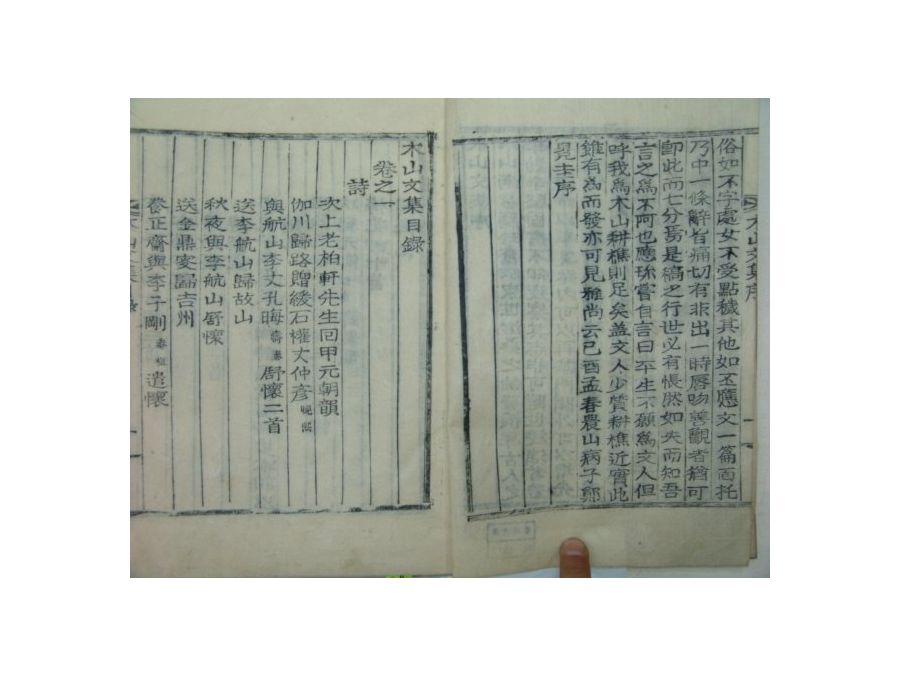 俗如不字處女不受點穢其他如丕應文一篇面托
乃中一條辭旨痛切有非出一時唇吻善觀者猶可
卽此而七分焉是稿之行世必有悵然如失而知吾
言之爲不阿也應珫嘗自言曰平生不願爲文人但
呼我爲木山耕樵則足矣盖文人少質耕樵近實此
雖有爲而發亦可見雅尚云己酉孟春農山病子鄭
晃圭序
木山文集序
木山文集目錄
卷之一
詩
次上老柏軒先生回甲元朝韻
伽川歸路贈綾石權丈仲彦
與航山李丈孔晦 舒懷二首
送李航山歸故山
秋夜與李航山舒懷
送金鼎安歸吉州
養正齋與李子剛 遣懷